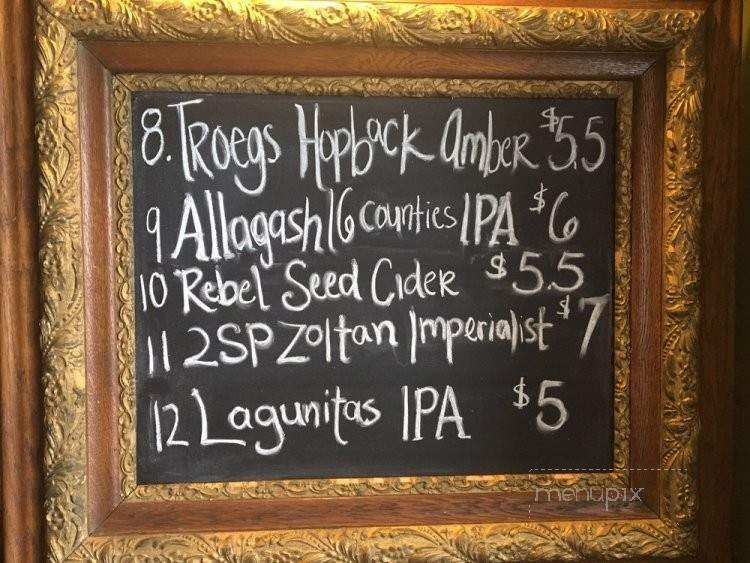 8. Troegs Hopback Amber $5.5
9 Allagash 16 counties IPA $6
10 Rebel Seed Cider $5.5
11 2SP Zoltan Imperialist $7
12 Lagunitas IPA $5
menupix